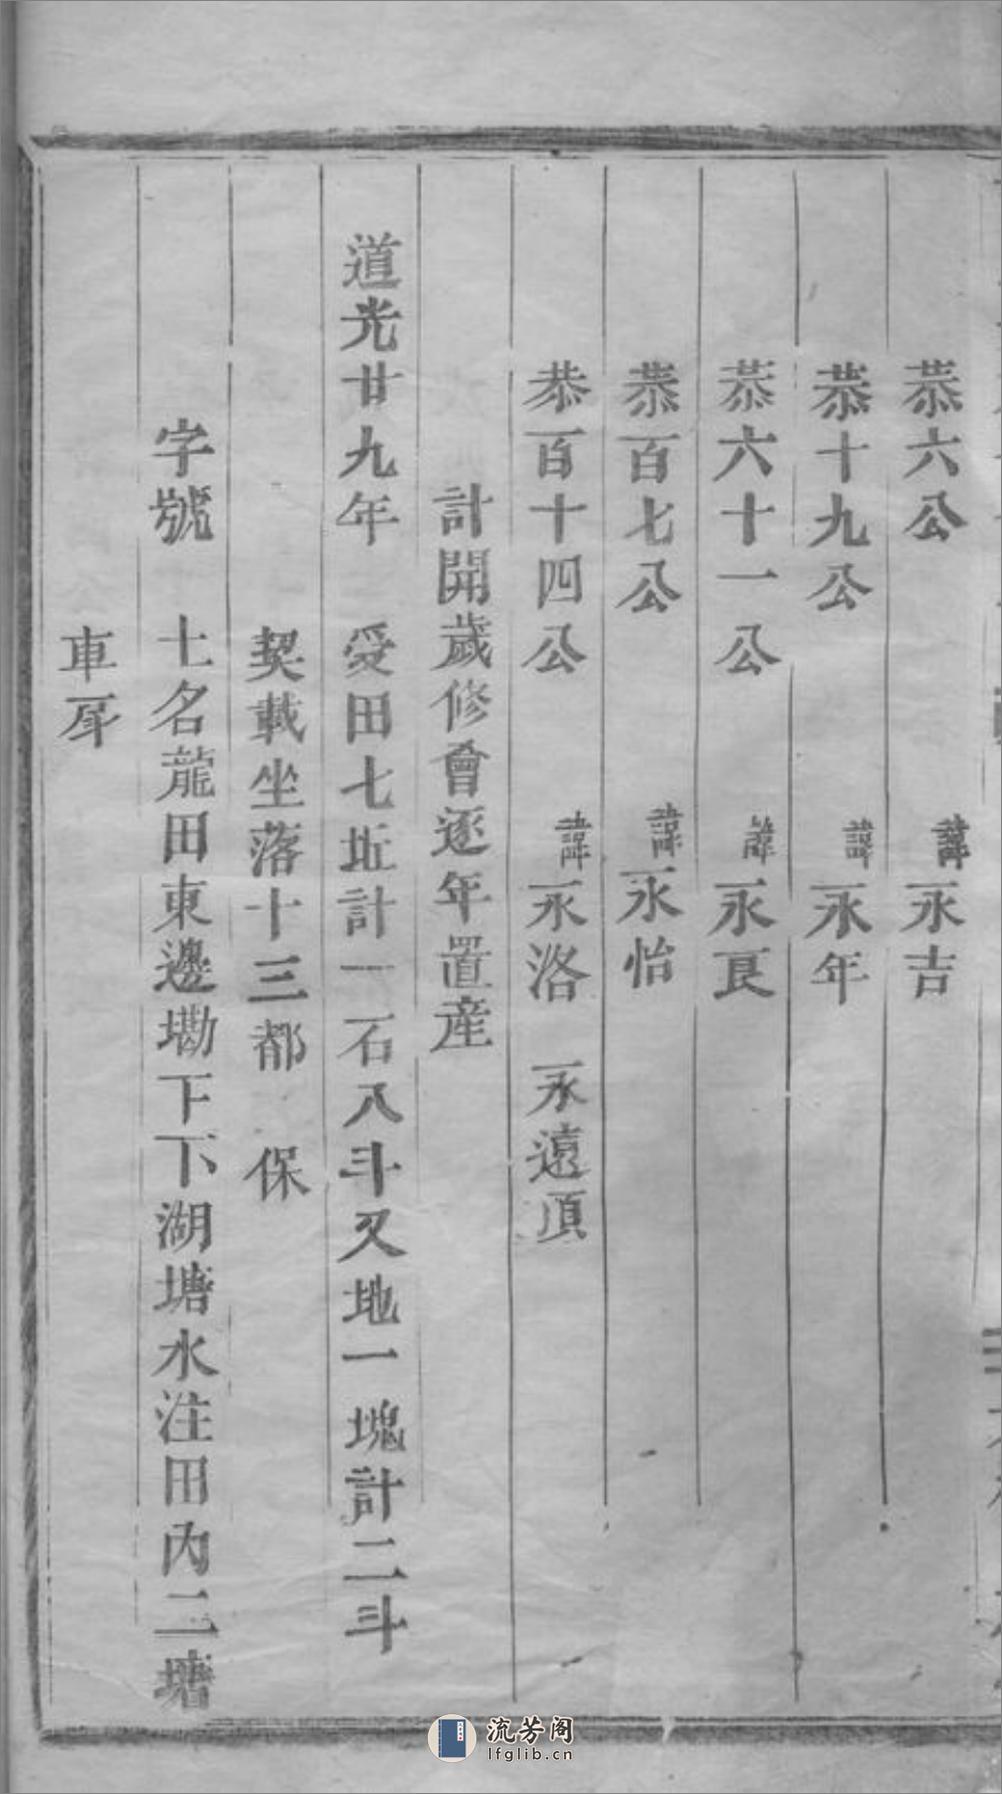 恭六公 諱永吉
恭十九公 諱永年
恭六十一公 諱永良
恭百七公 諱永怡
恭百十四公 諱永洛 永遠頂
計開歲修會逐年置産
道光廿九年 受田七坵計一石八斗又地一塊計二斗
契載坐落十三都 保
字號 土名龍田東邊墈下下湖塘水注田內二塘
車戽
流芳阁
lfglib.cn